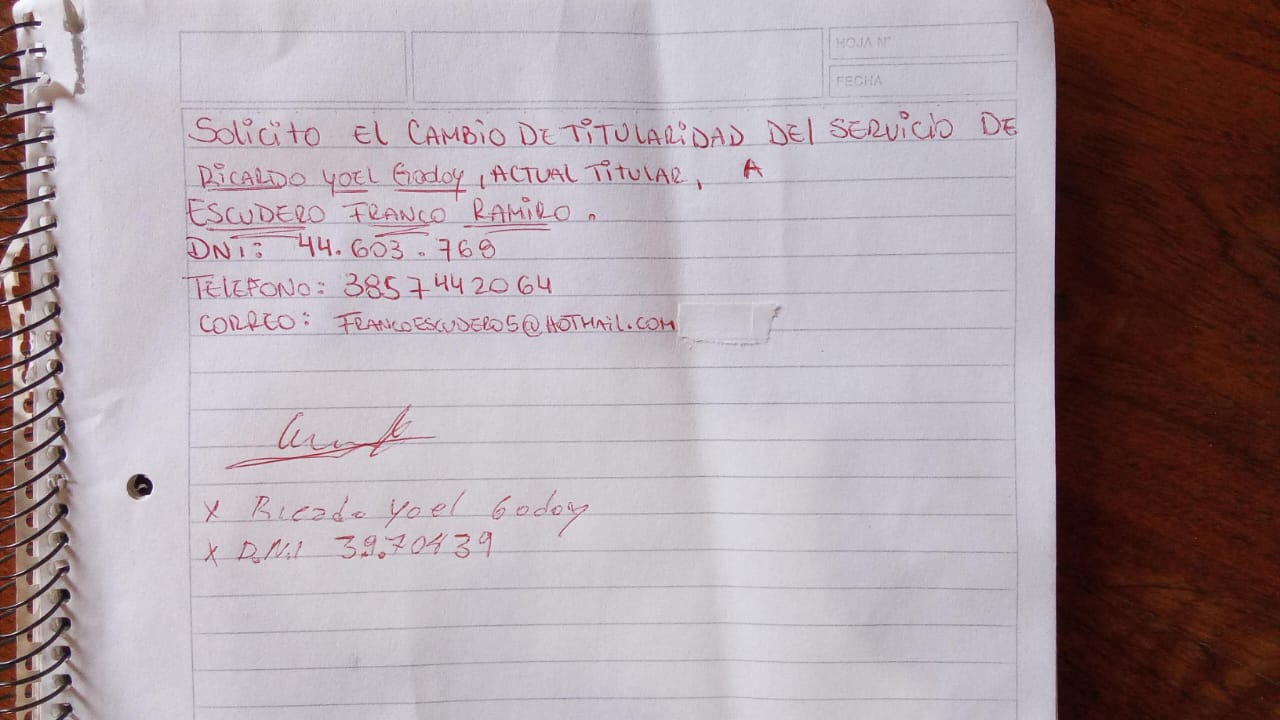 HOJA N°
FECHA
Solicito El CAMBIO DE TITULARIDAD DEl SERVICIO DE
RICARDO YOEl Godoy, ACTUAL TITULAR, A
ESCUDERO FRANCO RAMIRO.
DNI: 44.603.769
TELEFONO: 3857442064
CORREO: FRANCOESCUDERO5@HOTMAIL.COM
x Ricardo Yoel Godoy
x D.N.I 39.70439